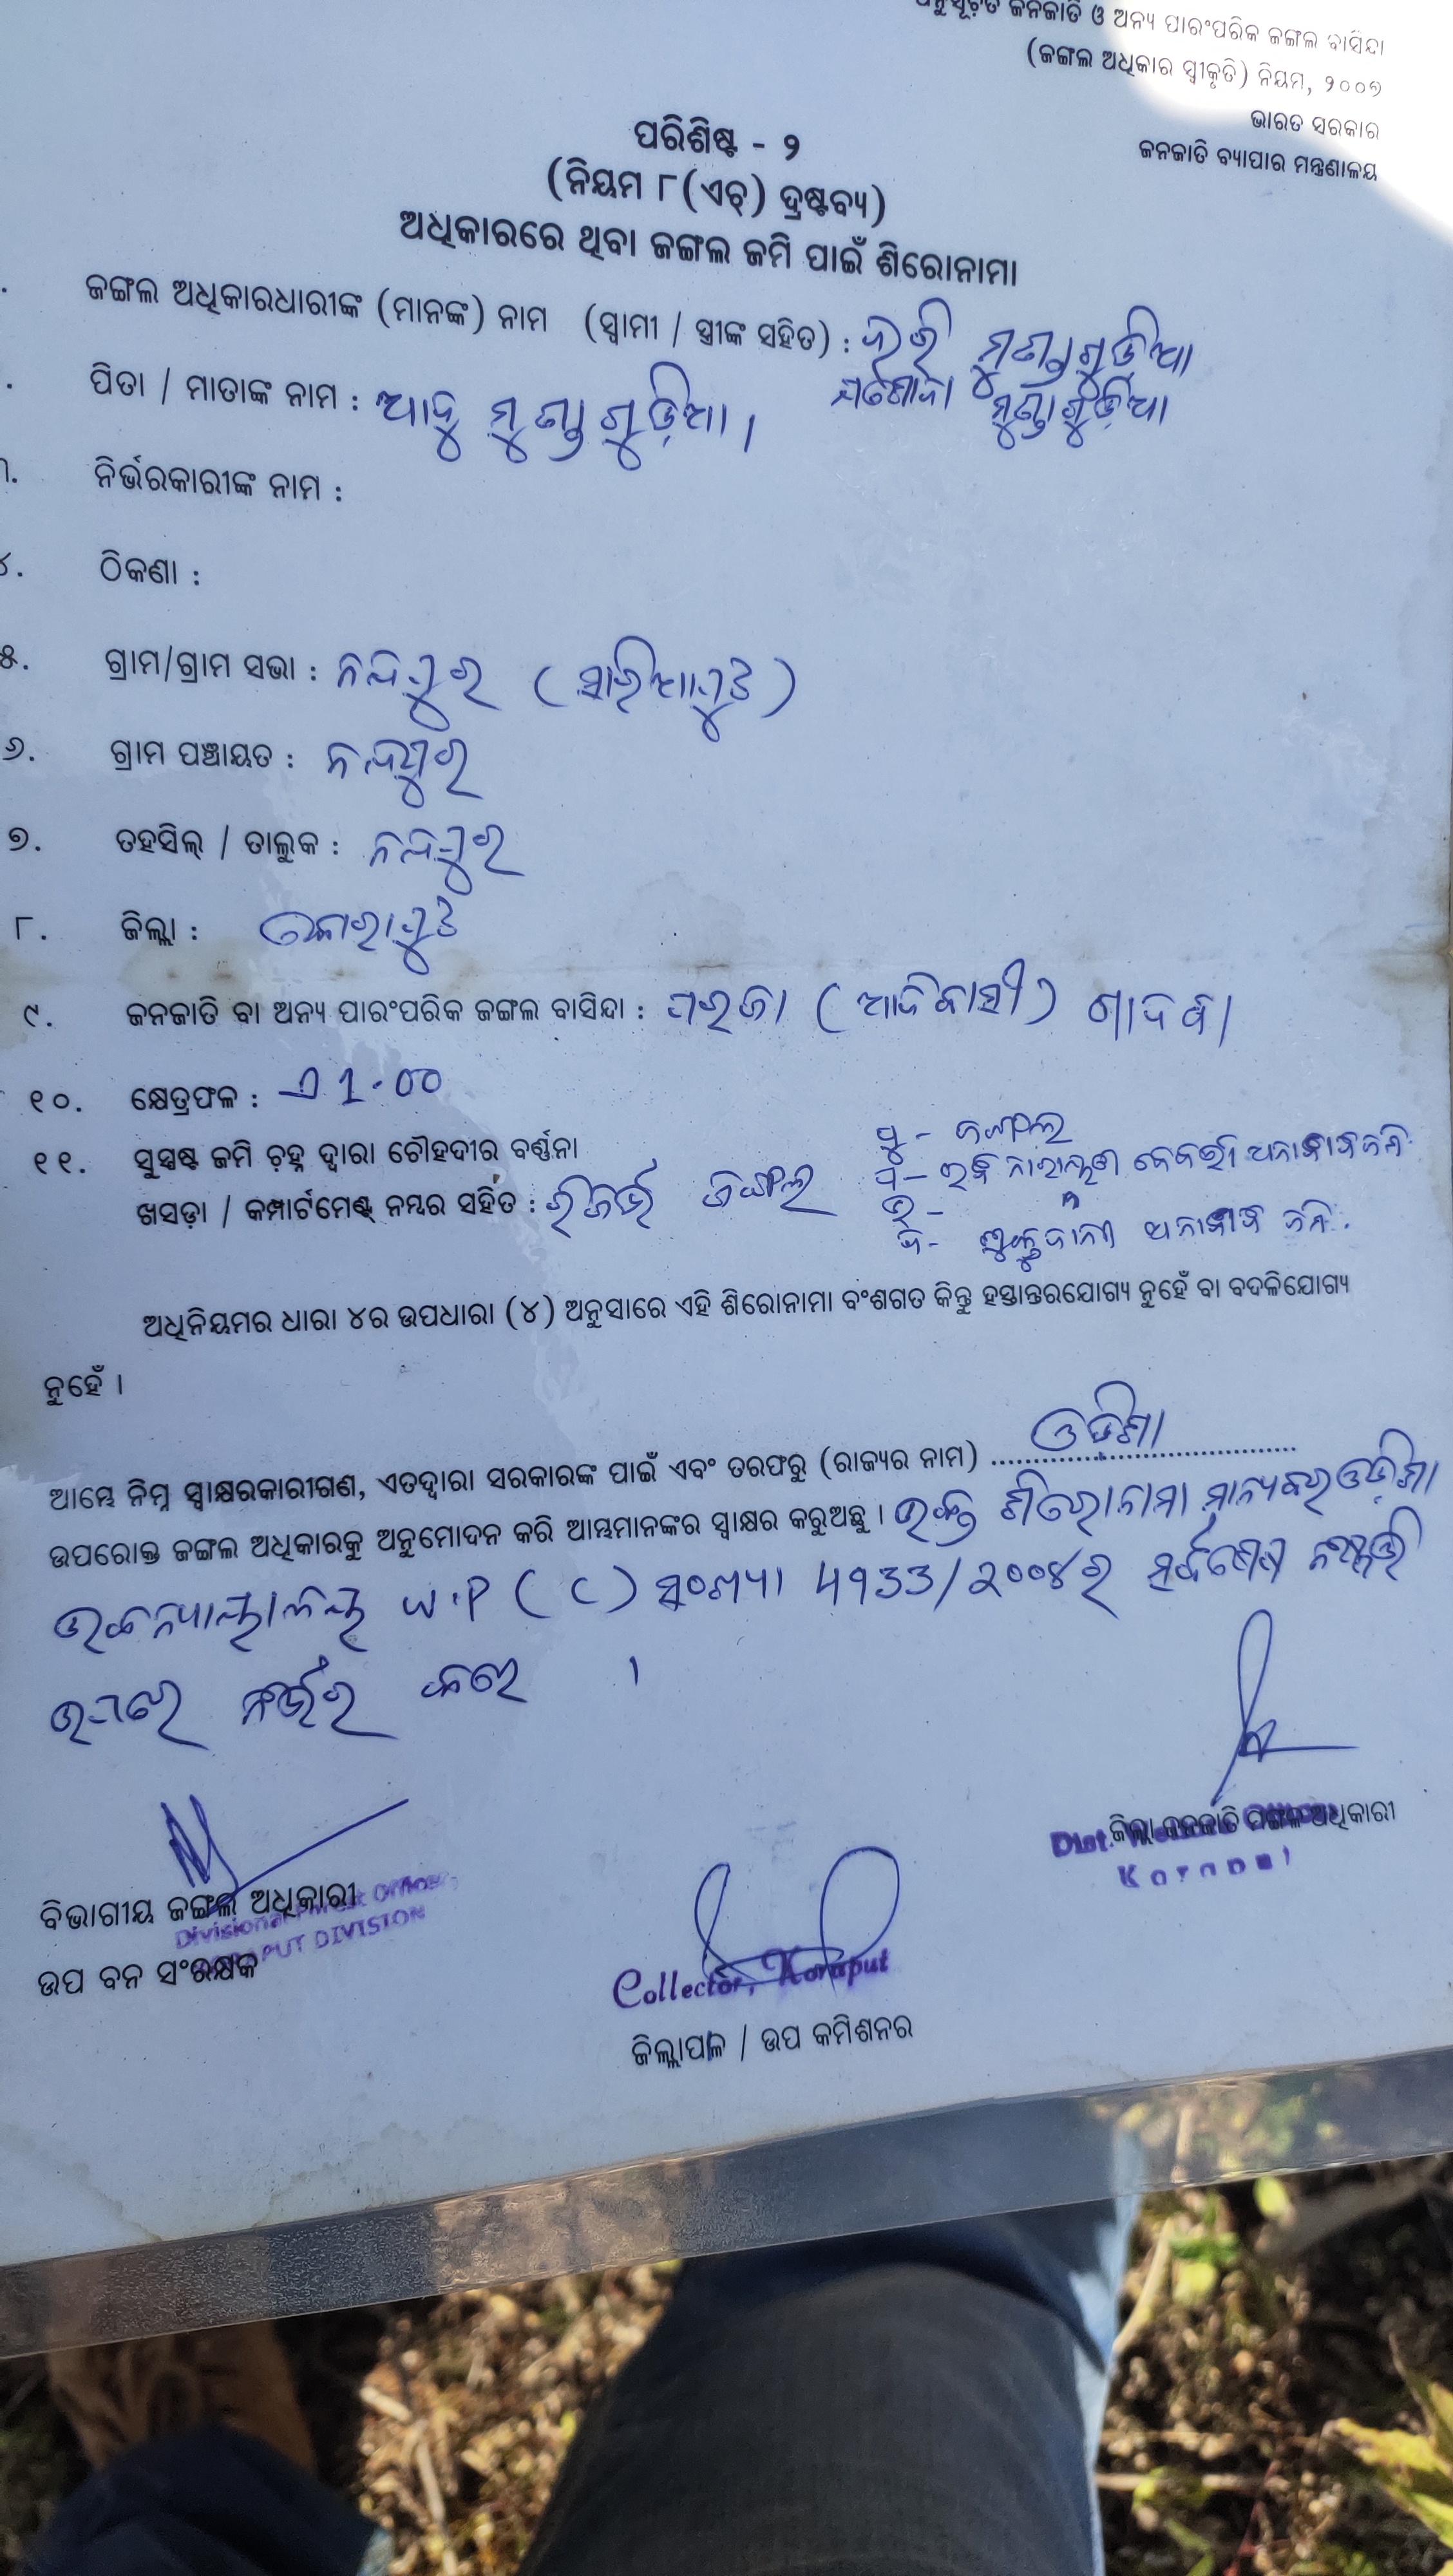 ଅନୁସୂଚିତ ଜନଜାତି ଓ ଅନ୍ୟ ପାରଂପରିକ ଜଙ୍ଗଲ ବାସିନ୍ଦା
(ଜଙ୍ଗଲ ଅଧିକାର ସ୍ୱୀକୃତି) ନିୟମ, ୨୦୦୭
ଭାରତ ସରକାର
ଜନଜାତି ବ୍ୟାପାର ମନ୍ତ୍ରଣାଳୟ
ପରିଶିଷ୍ଟ - ୨
(ନିୟମ ୮(ଏଚ୍) ଦ୍ରଷ୍ଟବ୍ୟ)
ଅଧିକାରରେ ଥିବା ଜଙ୍ଗଲ ଜମି ପାଇଁ ଶିରୋନାମା
ଜଙ୍ଗଲ ଅଧିକାରଧାରୀଙ୍କ (ମାନଙ୍କ) ନାମ (ସ୍ୱାମୀ / ସ୍ତ୍ରୀଙ୍କ ସହିତ) : ହରି ମୁଣ୍ଡାଗୁଡ଼ିଆ
ମୁଣ୍ଡାଗୁଡ଼ିଆ
ପିତା / ମାତାଙ୍କ ନାମ : ଆଦୁ ମୁଣ୍ଡାଗୁଡ଼ିଆ ।
୩. ନିର୍ଭରକାରୀଙ୍କ ନାମ :
୪. ଠିକଣା :
୫. ଗ୍ରାମ/ଗ୍ରାମ ସଭା : ନନ୍ଦପୁର (ସାରିଆପୁଟ)
୬. ଗ୍ରାମ ପଞ୍ଚାୟତ : ନନ୍ଦପୁର
୭. ତହସିଲ୍ / ତାଲୁକ : ନନ୍ଦପୁର
୮. ଜିଲ୍ଲା : କୋରାପୁଟ
୯. ଜନଜାତି ବା ଅନ୍ୟ ପାରଂପରିକ ଜଙ୍ଗଲ ବାସିନ୍ଦା : ପରଜା (ଆଦିବାସୀ)
୧୦. କ୍ଷେତ୍ରଫଳ : ଏ 1.00
୧୧. ସୁସ୍ପଷ୍ଟ ଜମି ଚିହ୍ନ ଦ୍ୱାରା ଚୌହଦୀର ବର୍ଣ୍ଣନା
ଖସଡ଼ା / କମ୍ପାର୍ଟମେଣ୍ଟ୍ ନମ୍ବର ସହିତ : ରିଜର୍ଭ ଜଙ୍ଗଲ
ପୁ - ଜଙ୍ଗଲ
ଅଧିନିୟମର ଧାରା ୪ର ଉପଧାରା (୪) ଅନୁସାରେ ଏହି ଶିରୋନାମା ବଂଶଗତ କିନ୍ତୁ ହସ୍ତାନ୍ତରଯୋଗ୍ୟ ନୁହେଁ ବା ବଦଳିଯୋଗ୍ୟ
ନୁହେଁ ।
ଆମ୍ଭେ ନିମ୍ନ ସ୍ୱାକ୍ଷରକାରୀଗଣ, ଏତଦ୍ୱାରା ସରକାରଙ୍କ ପାଇଁ ଏବଂ ତରଫରୁ (ରାଜ୍ୟର ନାମ) ଓଡିଶା
ଉପରୋକ୍ତ ଜଙ୍ଗଲ ଅଧିକାରକୁ ଅନୁମୋଦନ କରି ଆମ୍ଭମାନଙ୍କର ସ୍ୱାକ୍ଷର କରୁଅଛୁ । ଉକ୍ତ ଶିରୋନାମା ମାନ୍ୟବର ଓଡ଼ିଶା
ଉଚ୍ଚନ୍ୟାୟାଳୟ W.P (C) ସଂଖ୍ୟା 4933/୨୦୦୪ର ସର୍ବଶେଷ ନିଷ୍ପତ୍ତି
ଉପରେ ନିର୍ଭର କରେ ।
ଜିଲ୍ଲା ଜନଜାତି ମଙ୍ଗଳ ଅଧିକାରୀ
ବିଭାଗୀୟ ଜଙ୍ଗଲ ଅଧିକାରୀ
Divisional Forest Officer
KORAPUT DIVISION
ଉପ ବନ ସଂରକ୍ଷକ
Collector, Koraput
ଜିଲ୍ଲାପାଳ / ଉପ କମିଶନର